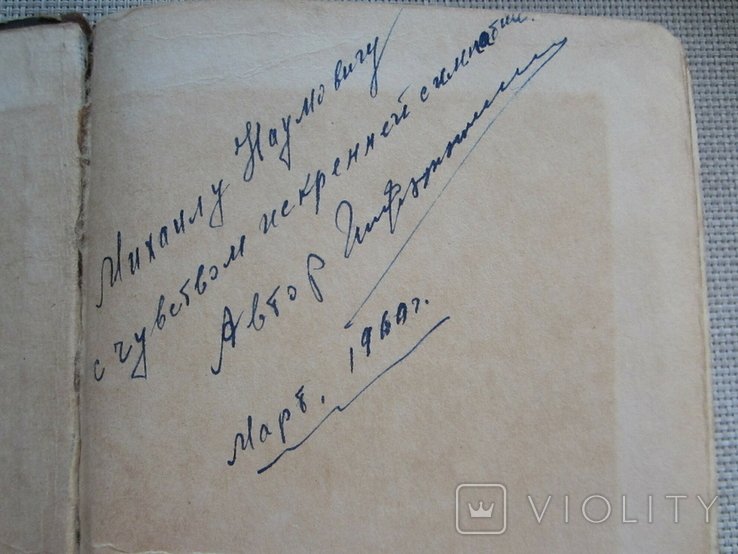 Михаилу Наумовичу
с чувством искренней симпатии.
Автор
Март, 1960г.
VIOLITY